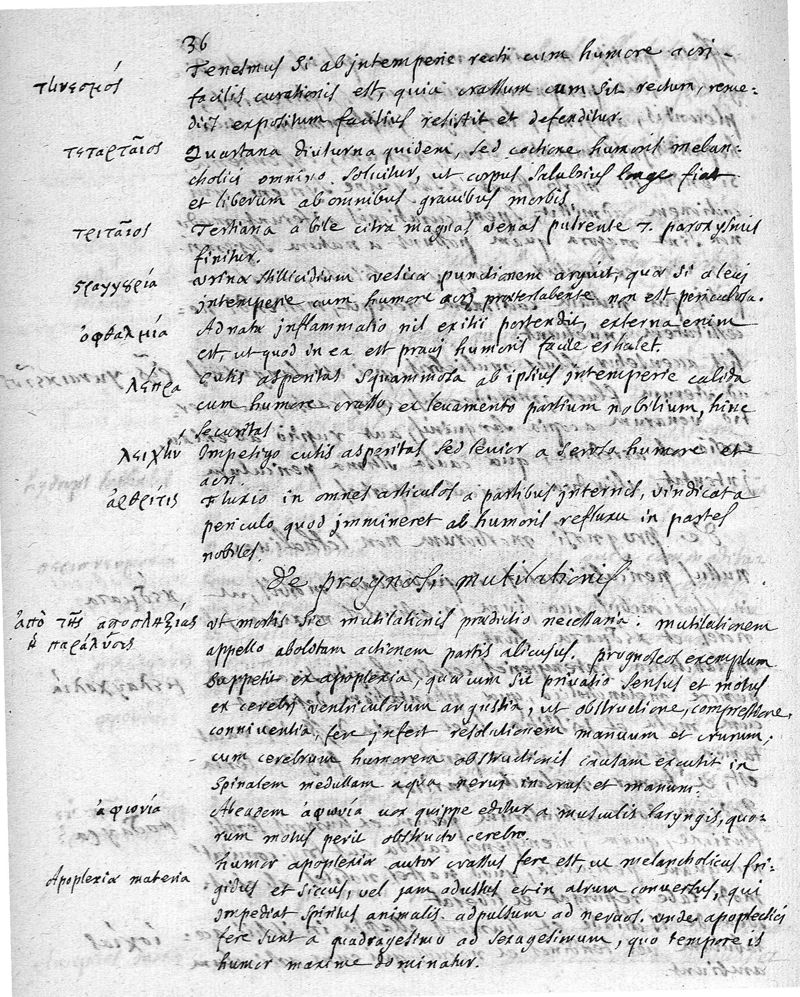 36
τηνεσμός Tenesmus si ab intemperie recti cum humore acri
facilis curationis est, quia crassum cum sit rectum, reme-
diis expositum facilius resistit et defenditur.
τεταρταῖος Quartana diuturna quidem, sed coctione humoris melan-
cholici omnino solvitur, ut corpus salubrius longe fiat
et liberum ab omnibus gravibus morbis
τριταῖος Tertiana a bile citra magnas venas putrente 7. paroxysmis
finitur.
ςραγγυρία urina stillicidium vesica punctionem arguit, qua si a levi
intemperie cum humore acri praeterlabente non est periculosa.
ὀφθαλμία Adnata inflammatio nil exitii portendit, externa enim
est, ut quod in ea est pravi humoris facile exhalet.
λέπρα Cutis asperitas squammosa ab ipsius intemperie calida
cum humore crasso, et levamento partium nobilium, hinc
securitas
λειχὴν Impetigo cutis asperitas sed levior a seroso humore et
acri.
ἀρθρίτις Fluxio in omnes articulos a partibus internis, vindicat a
periculo quod immineret ab humoris refluxu in partes
nobiles.
De prognosi mutilationis
ἀπὸ τῆς αποπληξίας ut mortis sic mutilationis praedictio necessaria. mutilationem
ἡ παράλυσις appello abolitam actionem partis alicujus. prognoseos exemplum
suppetit ex apoplexia, qua cum sit privatio sensus et motus
ex cerebri ventriculorum angustia, ut obstructione, compressione,
conniventia, fere infert resolutionem manuum et crurum,
cum cerebrum humorem obstructionis causam excutit in
spinalem medullam a qua nervi in crus et manum.
ἀφωνία ἀφωνία vox quippe editur a musculis laryngis, quo-
rum motus perit obstructo cerebro.
Apoplexia materia humor apoplexia autor crassus fere est, ut melancholicus fri-
gidus et siccus, vel jam adustus et in atrum conversus, qui
impediat spiritus animalis adpulsum ad nervos. unde apoplectici
fere sunt a quadragesimo ad sexagesimum, quo tempore is
humor maxime dominatur.